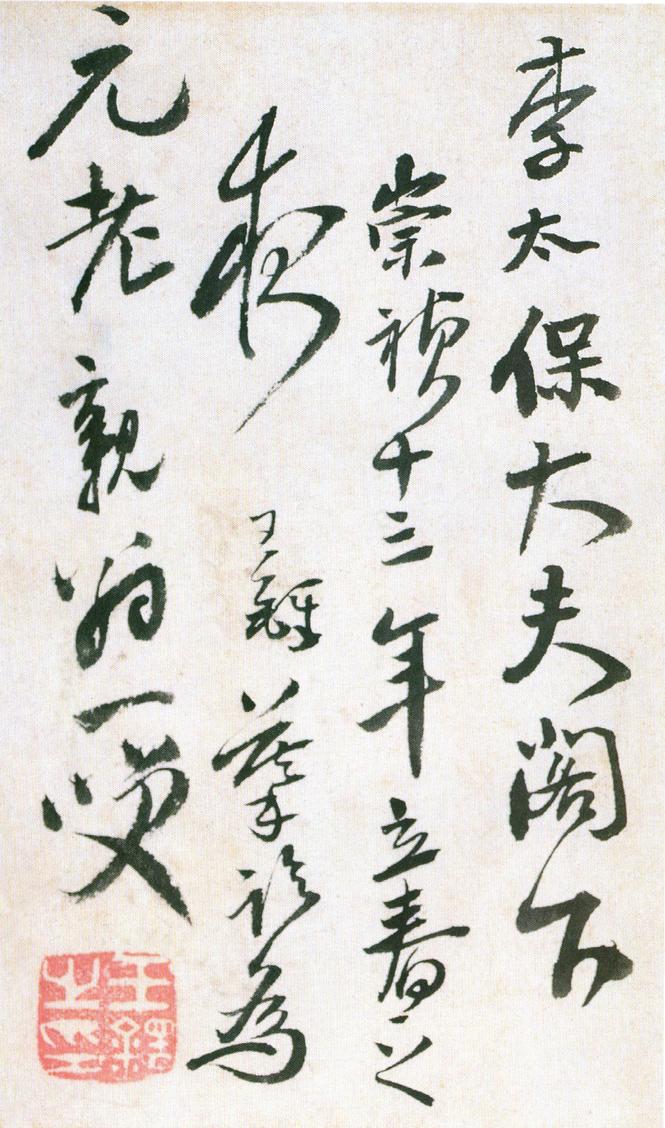 李太保大夫閣下
崇禎十三年立春之
夜 王鐸摹語為
元老親翁一笑
王鐸之印